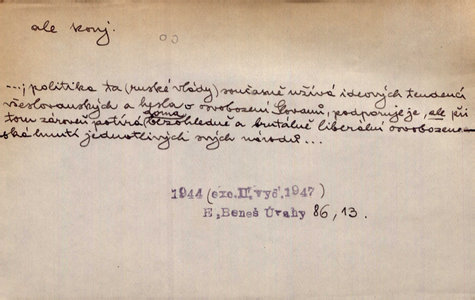 ale konj.
...; politika ta (ruské vlády) současně užívá ideových tendencí
všeslovanských a hesla o osvobození Slovanů, podporuje je, ale při
tom zároveň potírá doma bezohledně a brutálně liberální osvobozenec-
ská hnutí jednotlivých svých národů...
1944 (exc. II. vyd. 1947)
E. Beneš Úvahy 86, 13.